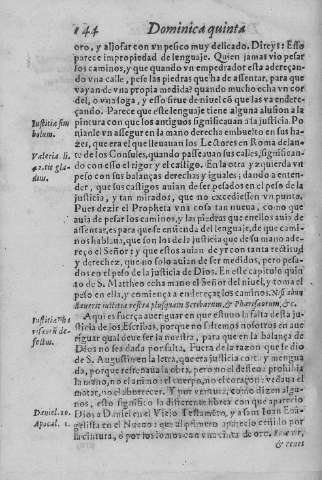 144 Dominica quinta
oro, y aljofar con vn pesico muy delicado. Direys: Esso
parece impropiedad de lenguaje. Quien jamas vio pesar
los caminos, y que quando vn empedrador esta adereçan-
do vna calle, pese las piedras que ha de assentar, para que
vayan de vna propia medida? quando mucho echa vn cor
del, o vna soga, y esso sirue de niuel cõ que las va endere-
çando. Parece que este lenguaje tiene alguna alusion a la
Iustitia sim
bolum.
pintura con que los antiguos significauan a la justicia. Po
nianle vn assegur en la mano derecha embuelto en sus ha-
zes, que era el que lleuauan los Lectores en Roma delan-
Valeria. li.
te de los Consules, quando passeauan sus calles, significan-
do con esso el rigor y el castigo. En la otra yzquierda vn
peso con sus balanças derechas y iguales; dando a enten-
der, que sus castigos auian de ser pesados en el peso de la
justicia, y tan mirados, que no excediessen vn punto.
Pues dezir el Propheta vna cosa tan nueua, como que
auia de pesar los caminos, y las piedras que en ellos auia de
assentar, es para que se entienda del lenguaje, de que cami-
nos hablaua, que son los de la justicia que de su mano ade-
reço el Señor: y que estos auian de yr con tanta rectitud
y derechez, que no solo auian de ser medidos, pero pesa-
dos en el peso de la justicia de Dios. En este capitulo quin
to de S. Mattheo echa mano el Señor del niuel, y toma el
peso en ella, y comiença a endereçar los caminos. Nisi abun
dauerit iustitia vestra plusquam Scribarum, & Pharisæorum, &c.
Aqui es fuerça aueriguar en que estuuo la falta desta ju-
sticia de los Escribas, porque no sabemos nosotros en aue
riguar qual deue ser la nuestra, para que en la balança de
Dios no sea dada por falta. Fuera de la razon que le dio
de S. Augustin en la letra, que era justicia corta y mengua
da, porque refrenaua la obra, pero no el desseo: prohibia
la mano, no el animo: el cuerpo, no el coraçon: vedaua el
matar, no el aborrecer. Y por ventura, como dizen algu-
nos, esto significo la differente librea con que aparecio
Daniel. 10.
Dios a Daniel en el Viejo Testamẽto, y a san Iuan Eua-
Apocal. 1.
gelista en el Nueuo: que al primero aparecio ceñido por
la cintura, o por los lomos con vna cinta de oro.
& renes